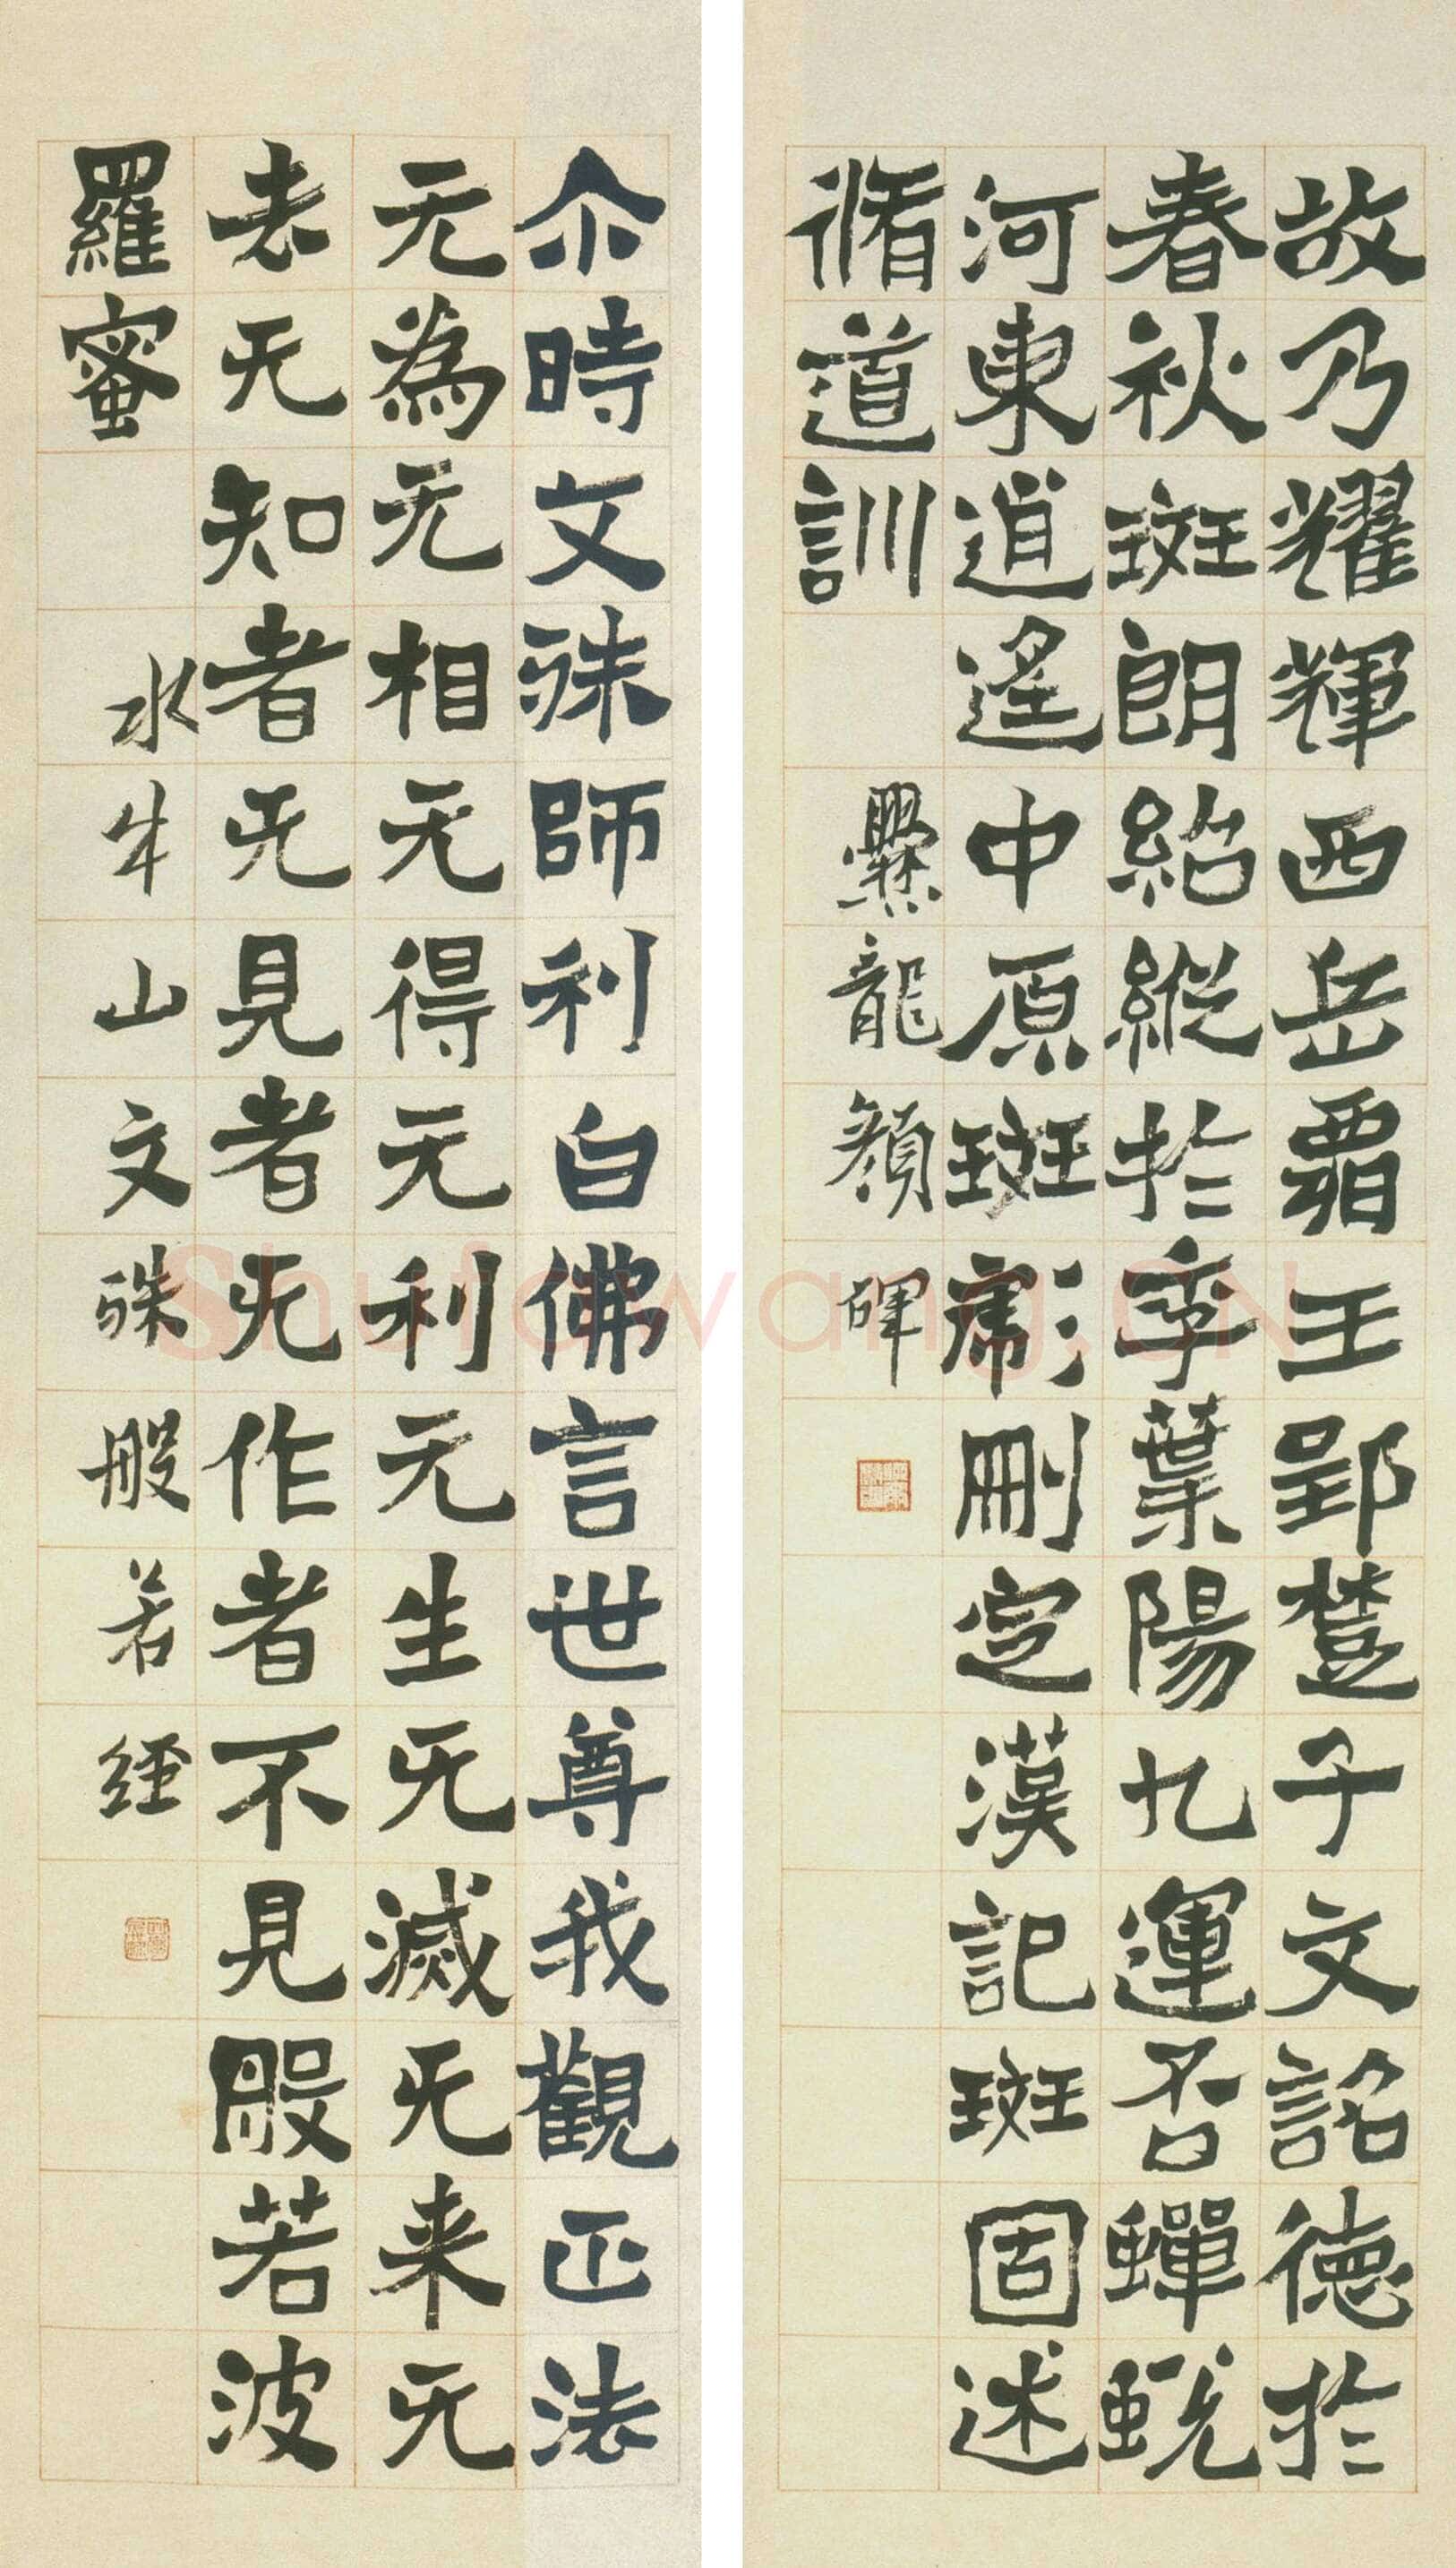 故乃耀輝西岳霸王郢楚子文詺德於
春秋斑朗紹縱於季葉陽九運否蟬蛻
河東逍遙中原斑彪刪定漢記斑固述
脩道訓 爨龍顏碑
尒時文殊師利白佛言世尊我觀正法
无為无相无得无利无生无滅无来无
去无知者无見者无作者不見般若波
羅蜜 水牛山文殊般若經
Shufawang.CN